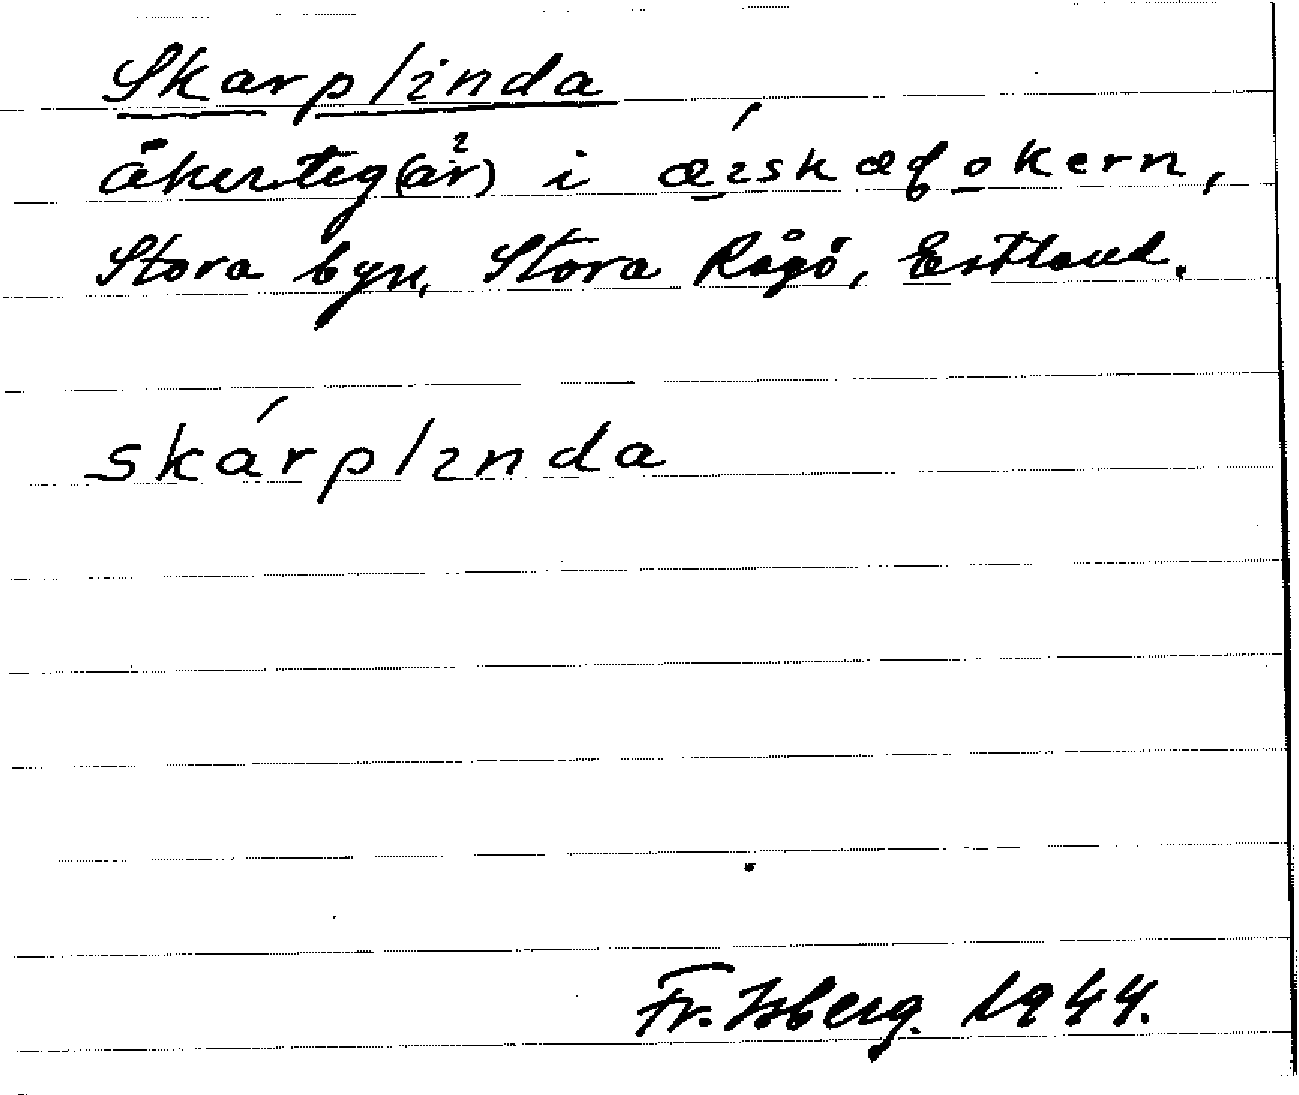 Skarplinda
åkerteg(ar²) i ǽ̱ıskæqo̱kern,
Stora byn, Stora Rågö, Estland.
skárplında
Fr. Isberg. 1944.